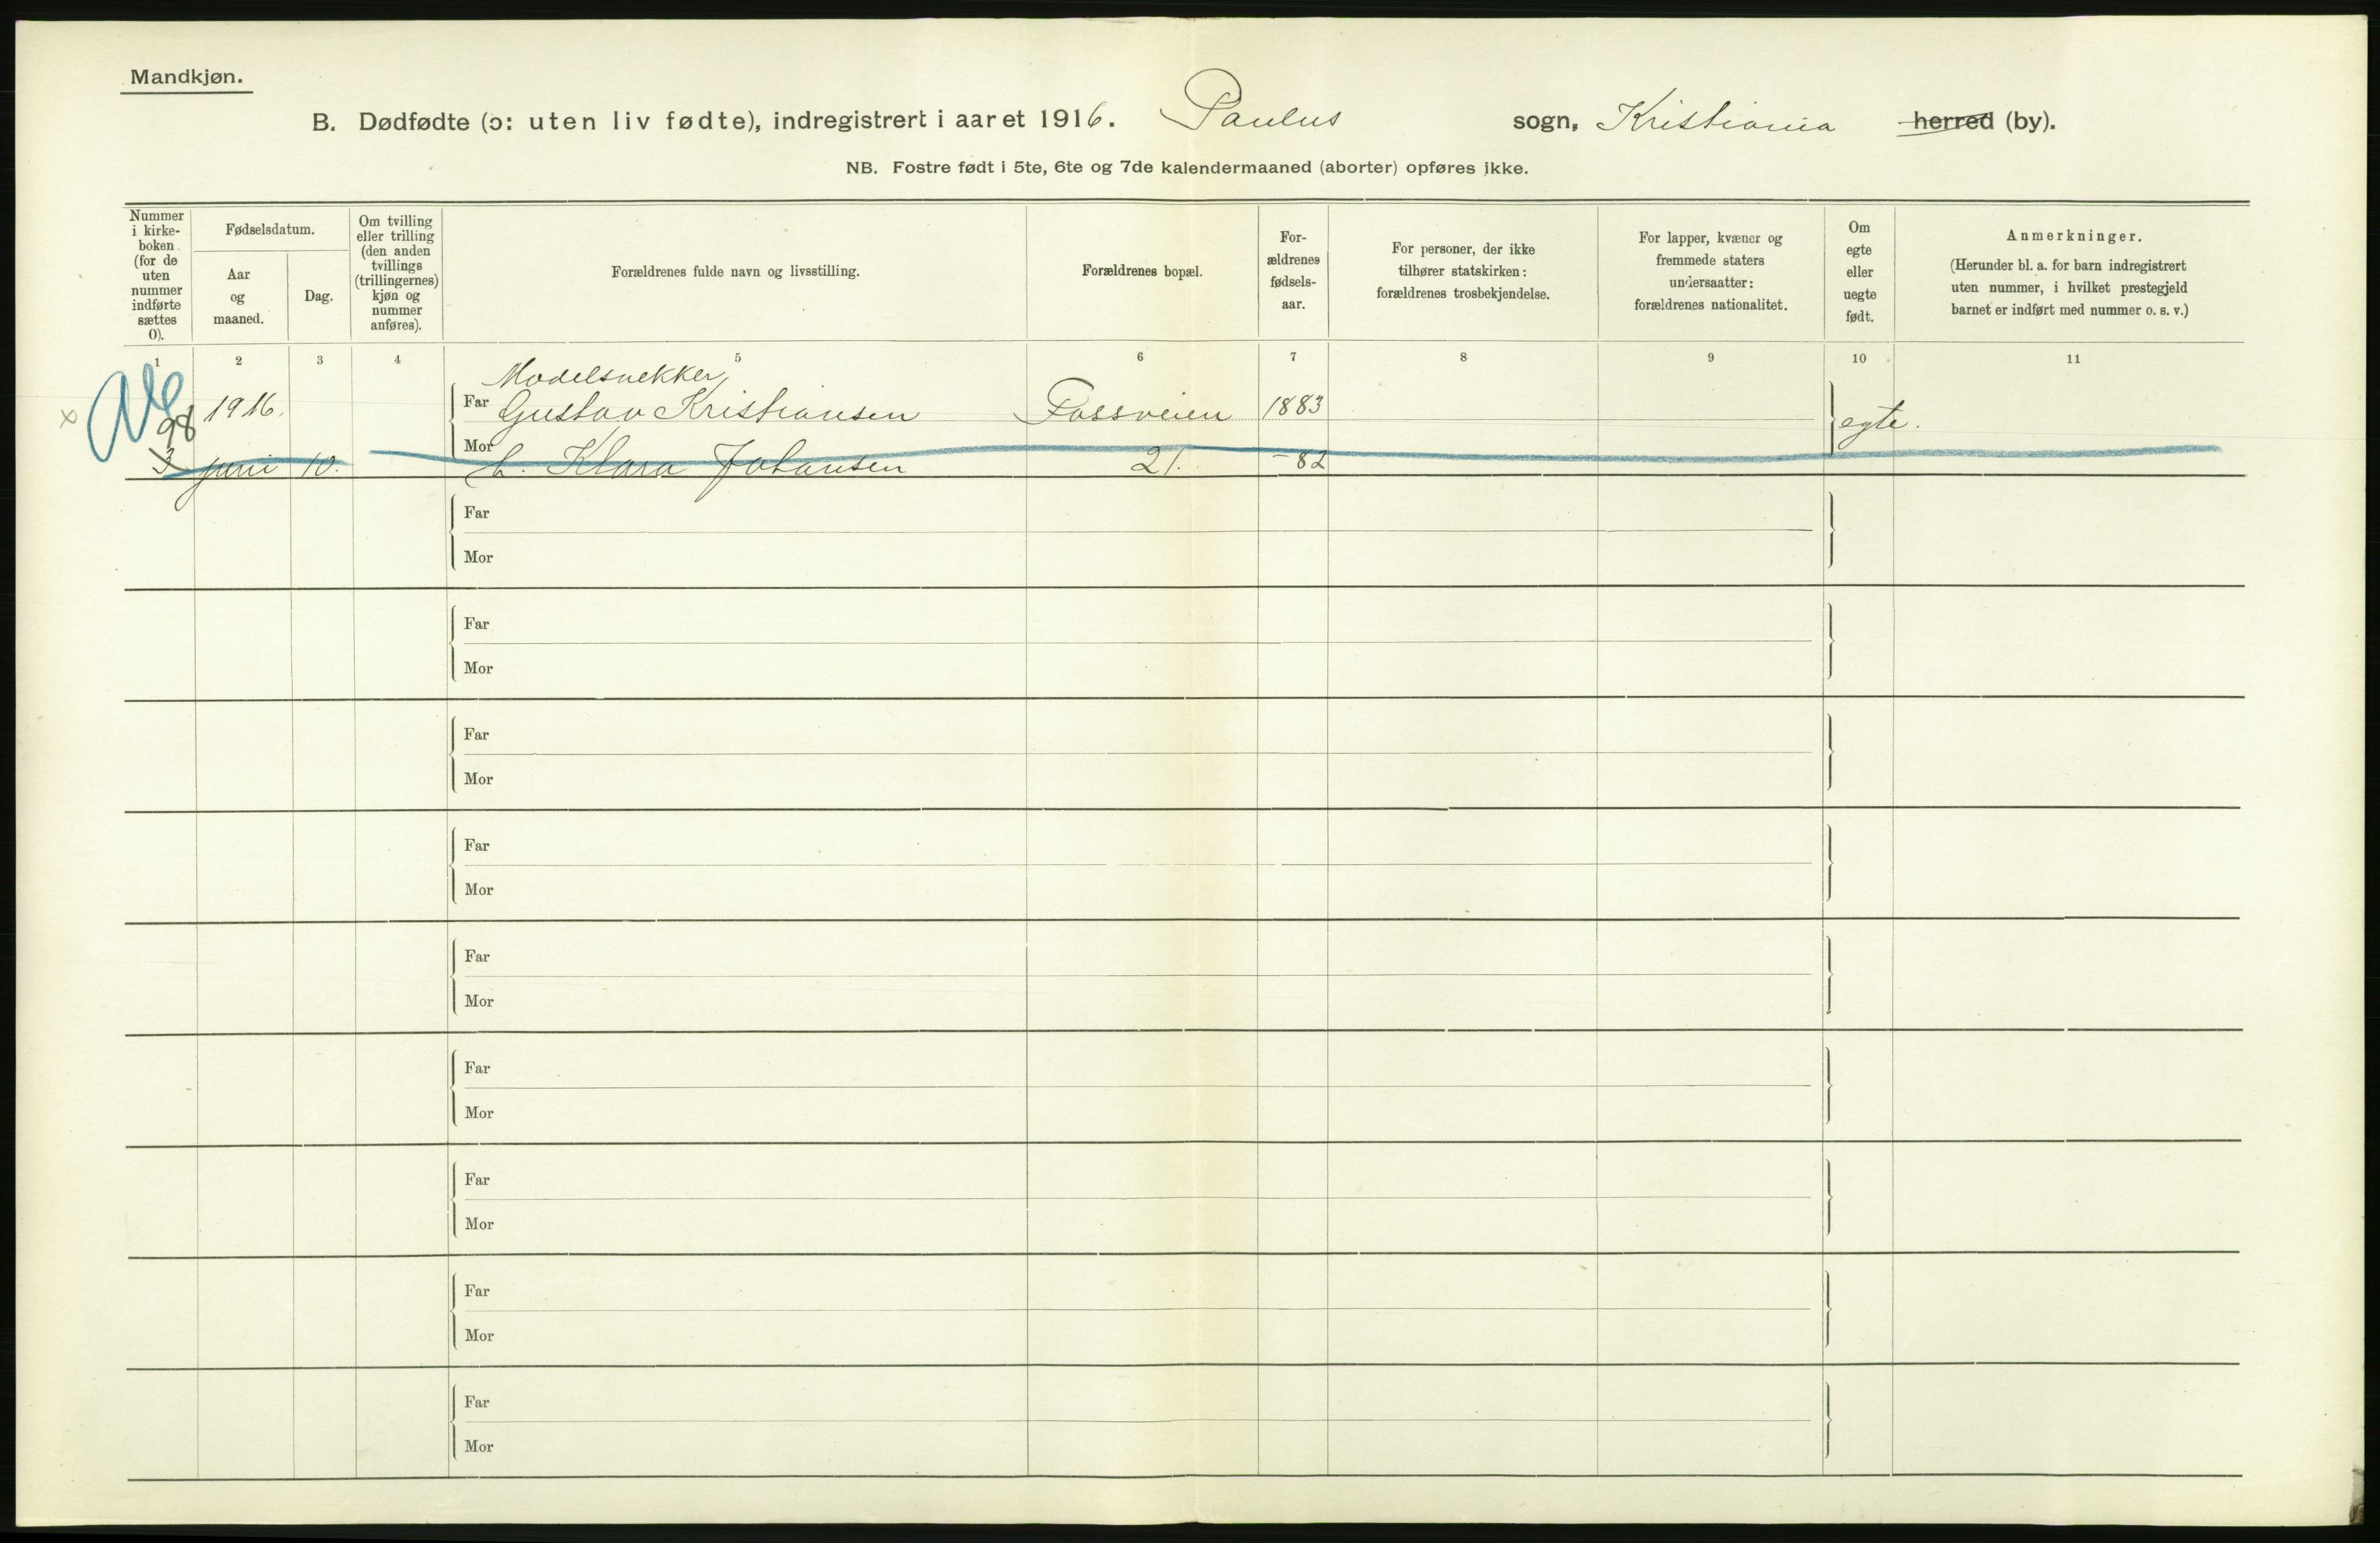 Mandkjøn.
B. Dødfødte (ɔ: uten liv fødte), indregistrert i aaret 1916. Paulus sogn, Kristiania herred (by).
NB. Fostre født i 5te, 6te og 7de kalendermaaned (aborter) opføres ikke.
Nummer
i kirke-
boken
(for de
uten
nummer
indførte
sættes
0).
Fødselsdatum.
Aar
og
maaned.
Dag.
Om tvilling
eller trilling
(den anden
tvillings
(trillingernes)
kjøn og
nummer
anføres).
Forældrenes fulde navn og livsstilling.
Forældrenes bopæl.
For-
ældrenes
fødsels-
aar.
For personer, der ikke
tilhører statskirken:
forældrenes trosbekjendelse.
For lapper, kvæner og
fremmede staters
undersaatter:
forældrenes nationalitet.
Om
egte
eller
uegte
født.
Anmerkninger.
(Herunder bl. a. for barn indregistrert
uten nummer, i hvilket prestegjeld
barnet er indført med nummer o. s. v.)
1 2 3 4 5 6 7 8 9 10 11
Modelsnekker
98 1916. Far Gustav Kristiansen Fossveien 1883 egte.
3 juni 10. Mor Klara Johansen 21. -82
Far
Mor
Far
Mor
Far
Mor
Far
Mor
Far
Mor
Far
Mor
Far
Mor
Far
Mor
Far
Mor